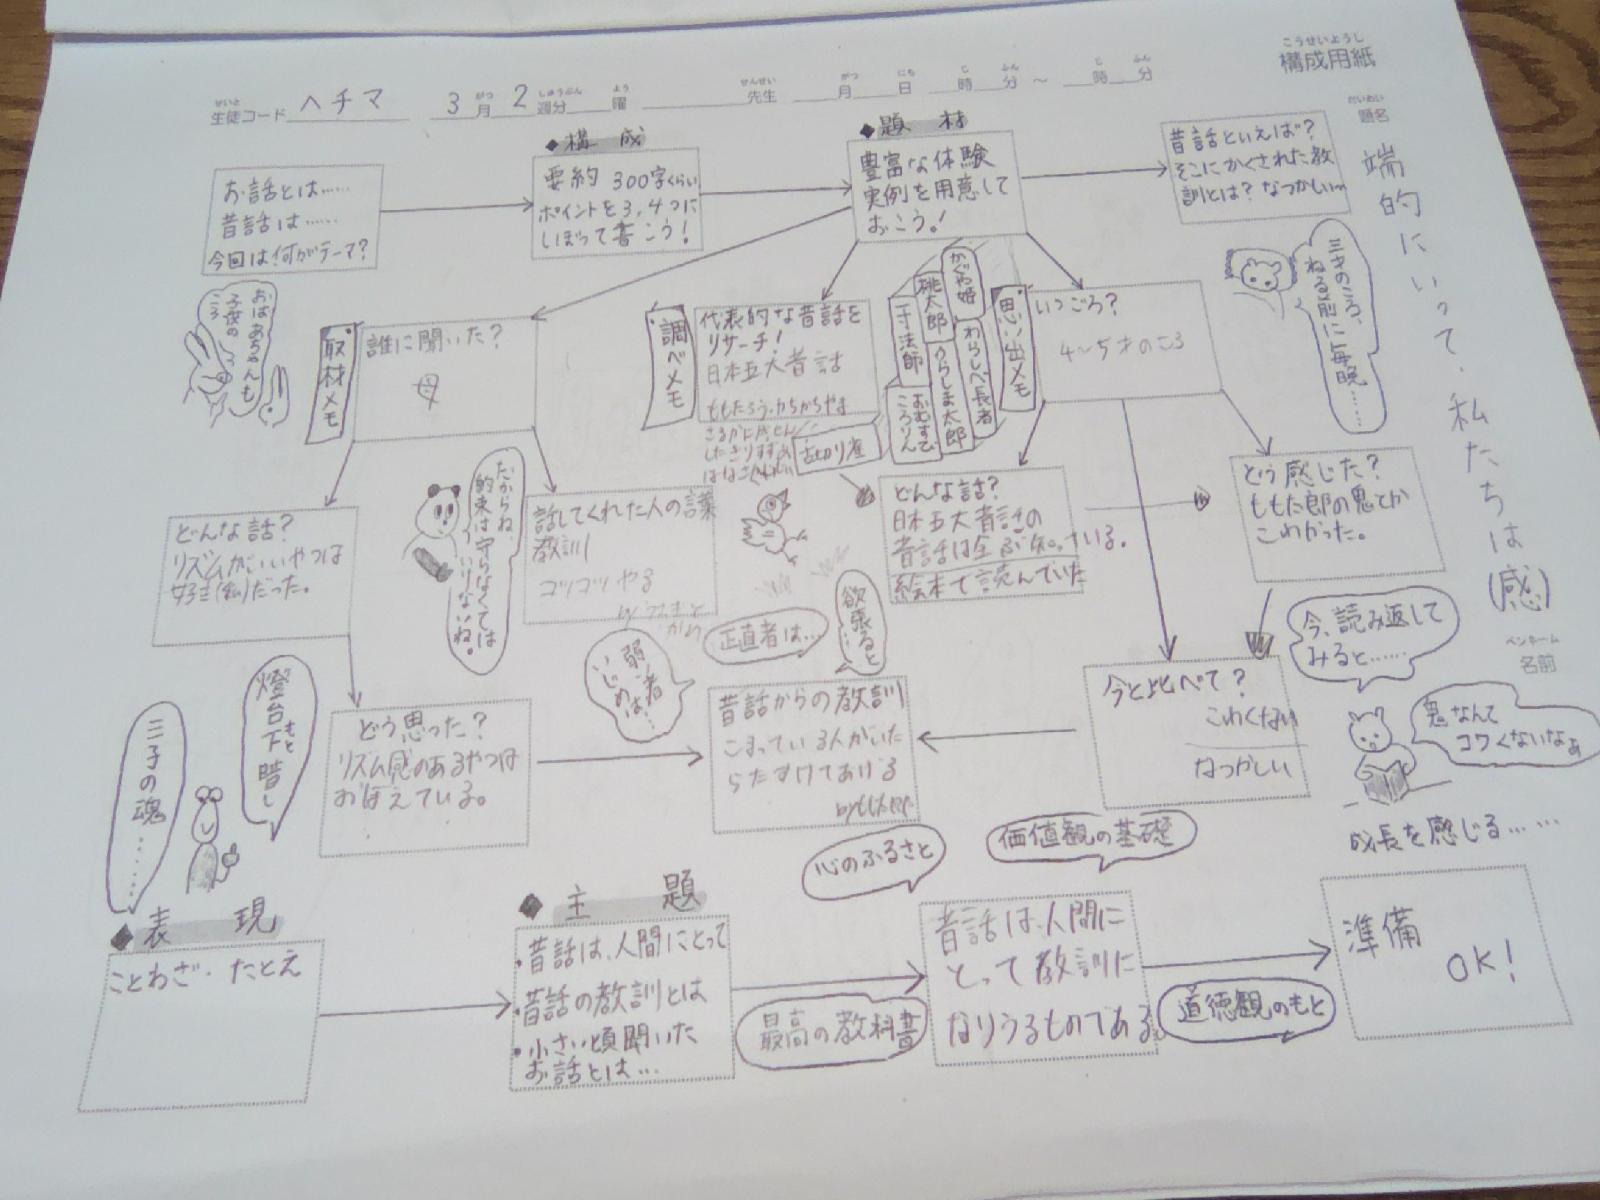 こうせいようし
構成用紙
せいと
生徒コード ヘチマ 3月 2週分 曜 先生 月 日 時 分 ~ 時 分
だいめい
題名
端的にいって、私たちは(感)
ペンネーム
名前
お話とは……
昔話は……
今回は何がテーマ?
◆構成
要約 300字くらい
ポイントを3,4つに
しぼって書こう!
◆題材
豊富な体験
実例を用意して
おこう!
昔話といえば?
そこにかくされた教
訓とは? なつかしい〜
三才のころ、
ねる前に毎晩……
おばあちゃんも
子供の
ころ
取材メモ
誰に聞いた?
母
調べメモ
代表的な昔話を
リサーチ!
日本五大昔話
ももたろう・かちかちやま
さるかに
舌切り雀
かぐや姫
桃太郎
一寸法師
わらしべ長者
うらしま太郎
おむすび
ころりん
思い出メモ
いつごろ?
4〜5才のころ
どんな話?
リズムがいいやつは
好き(私)だった。
だからね、
約束は守らなくては
いけないね。
話してくれた人の
教訓
コツコツやる
どんな話?
日本五大昔話の
昔話は全ぶ知っている。
絵本で読んでいた
どう感じた?
ももた郎の鬼とか
こわかった。
欲張ると…
正直者は…
弱い者
いじめは…
今、読み返して
みると……
どう思った?
リズム感のあるやつは
おぼえている。
昔話からの教訓
こまっている人がいた
らたすけてあげる
今と比べて?
こわくない
なつかしい
鬼なんて
コワくないなぁ
成長を感じる……
燈台下暗し
もと
三子の魂……
心のふるさと
価値観の基礎
◆表現
ことわざ・たとえ
◆主題
・昔話は、人間にとって
・昔話の教訓とは
・小さい頃聞いた
お話とは…
最高の教科書
昔話は、人間に
とって教訓に
なりうるものである。
道徳観のもと
準備
OK!